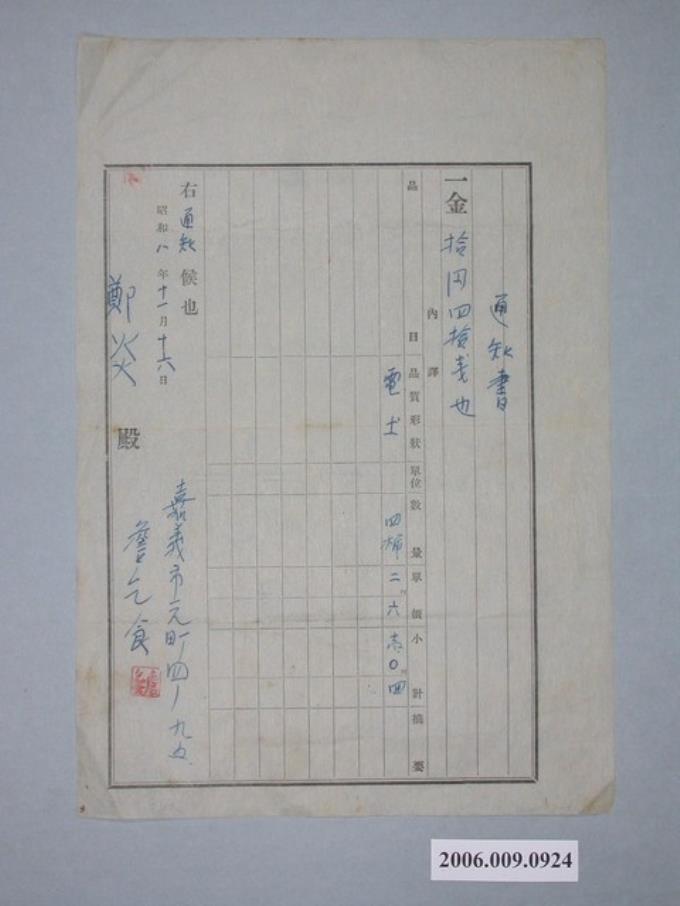 通知書
一金 拾円四拾戔也
內譯
品目 品質形狀 單位 數量 單價 小計 摘要
電土 四桶 二六 壱〇四
右通知候也
昭和八年十一月十六日
鄭炎 殿
嘉義市元町一四ノ九五
詹乞食
2006.009.0924